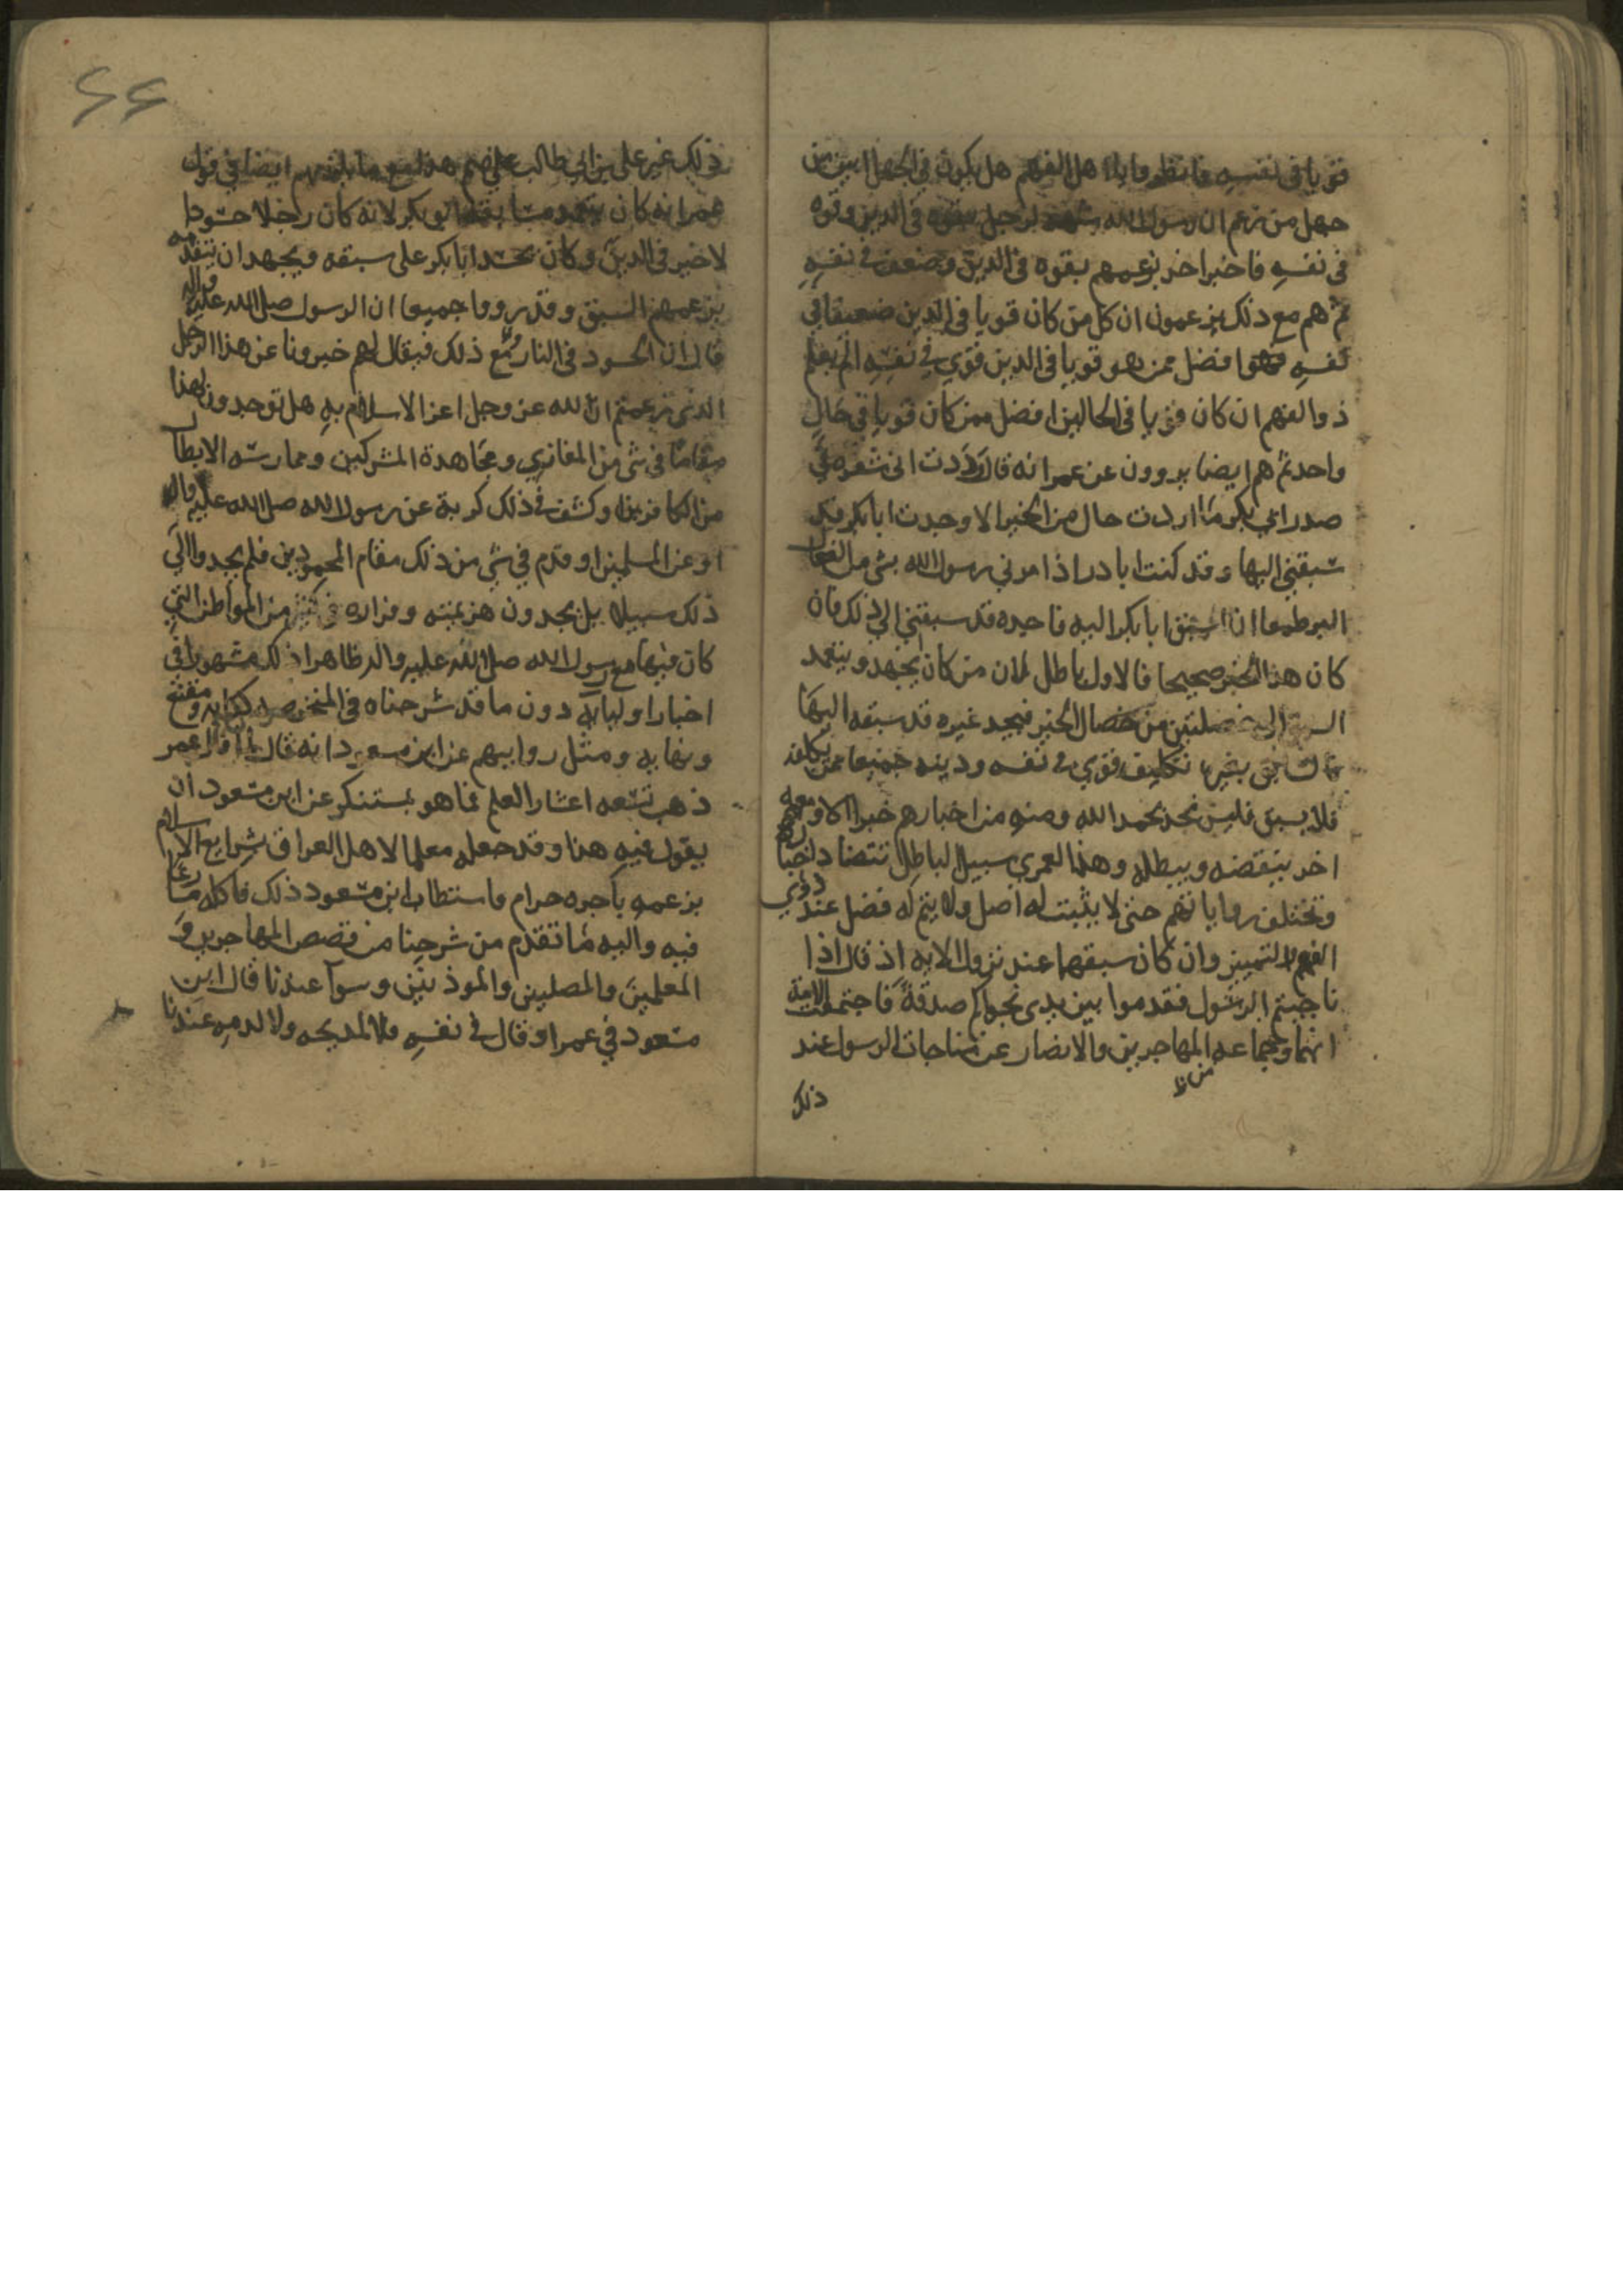 قويا في نفسه فانظروا يا اهل الفهم هل يكون في الجهل ابين من
جهل من زعم ان رسول الله شهد لرجل بقوه في الدين وقوه
في نفسه فاخبر اخر بزعمهم بقوه في الدين وضعف في نفسه
ثم هم مع ذلك يزعمون ان كل من كان قويا في الدين ضعيفا في
نفسه فهو افضل ممن هو قويا في الدين قوي في نفسه الم يعلم
ذوا الفهم ان كان قويا في الحالين افضل ممن كان قويا في حال
واحد ثم هم ايضا يروون عن عمر انه قال وددت اني شعره في
صدر ابي بكر ما اردت حال من الخير الا وجدت ابا بكر
سبقني اليها وقد كنت ابادر اذا امرني رسول الله بشي من
البر طمعا ان اسبق ابا بكر اليه فاجده قد سبقني الى ذلك فان
كان هذا الخبر صحيحا فالاول باطل لان من كان يجتهد ويتعمد
الى خصلتين من خصال الخير فيجد غيره قد سبقه اليها
بغير تكليف قوي في نفسه ودينه جميعا ممن يكلف
فلا يسبق فليس نجد بحمد الله ومنه من اخبارهم خبرا الا ومعه
اخر ينقضه ويبطله وهذا لعمري سبيل الباطل تتضاد اخبارهم
وتختلف رواياتهم حتى لا يثبت له اصل ولا يتم له فضل عند ذوي
الفهم والتمييز وان كان سبقهما عند نزول الايه اذ قال اذا
ناجيتم الرسول فقدموا بين يدي نجواكم صدقة فاجتمعت الامة
انهما وجماعه المهاجرين والانصار عن مناجات الرسول عند
من ظ
ذلك
٤٤
ذلك غير علي بن ابي طالب هذا مع ما يلزمهم ايضا في قول
عمر انه كان ابو بكر لانه كان رجلا حسودا
لا خير في الدين وكان يحسد ابا بكر على سبقه ويجهد ان يتقدمه
بزعمهم السبق وقد رووا جميعا ان الرسول صلى الله عليه واله
قال ان الحسود في النار ثم مع ذلك فيقال لهم خبرونا عن هذا الرجل
الذي زعمتم ان الله عز وجل اعز الاسلام به هل توجدون لهذا
مقاما في شي من المغازي ومجاهدة المشركين وممارسه الابطال
من الكافرين او كشف في ذلك كربة عن رسول الله صلى الله عليه واله
او عن المسلمين او قدم في شي من ذلك مقام المحمودين فلم يجدوا الى
ذلك سبيلا بل يجدون هزيمته وفراره في كثير من المواطن التي
كان فيها مع رسول الله صلى الله عليه واله ظاهرا ذلك مشهورا في
اخبار اوليائه دون ما قد شرحناه في
ونهايه ومثل روايتهم عن ابن مسعود انه قال لما قال عمر
ذهب تسعه اعشار العلم فما هو بمستنكر عن ابن مسعود ان
يقول فيه هذا وقد جعله معلما لاهل العراق شرايع الاسلام
بزعمه باجره حرام فاستطاب ابن مسعود ذلك فاكله
فيه واليه ما تقدم من شرحنا من قصص المهاجرين و
المعلمين والمصلين والموذنين وسوآ عندنا قال ابن
مسعود في عمر او قال في نفسه فلا لمديحه ولا لذمه عندنا